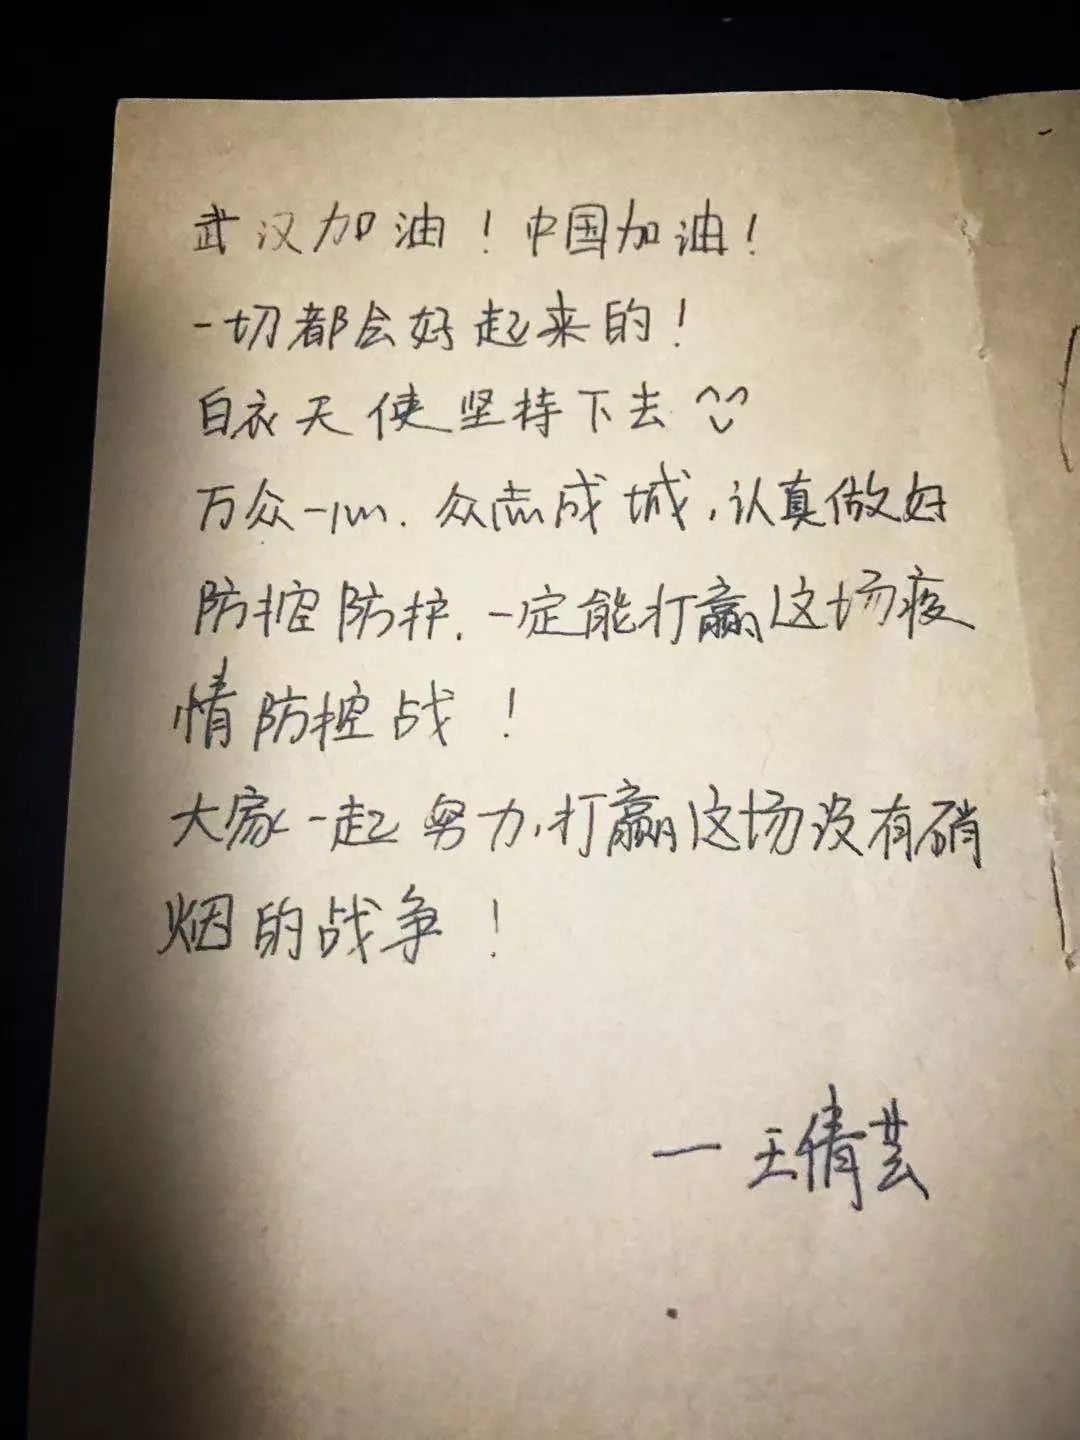 武汉加油！中国加油！
一切都会好起来的！
白衣天使坚持下去
万众一心.众志成城,认真做好
防控防护.一定能打赢这场疫
情防控战！
大家一起努力,打赢这场没有硝
烟的战争！
—王倩芸